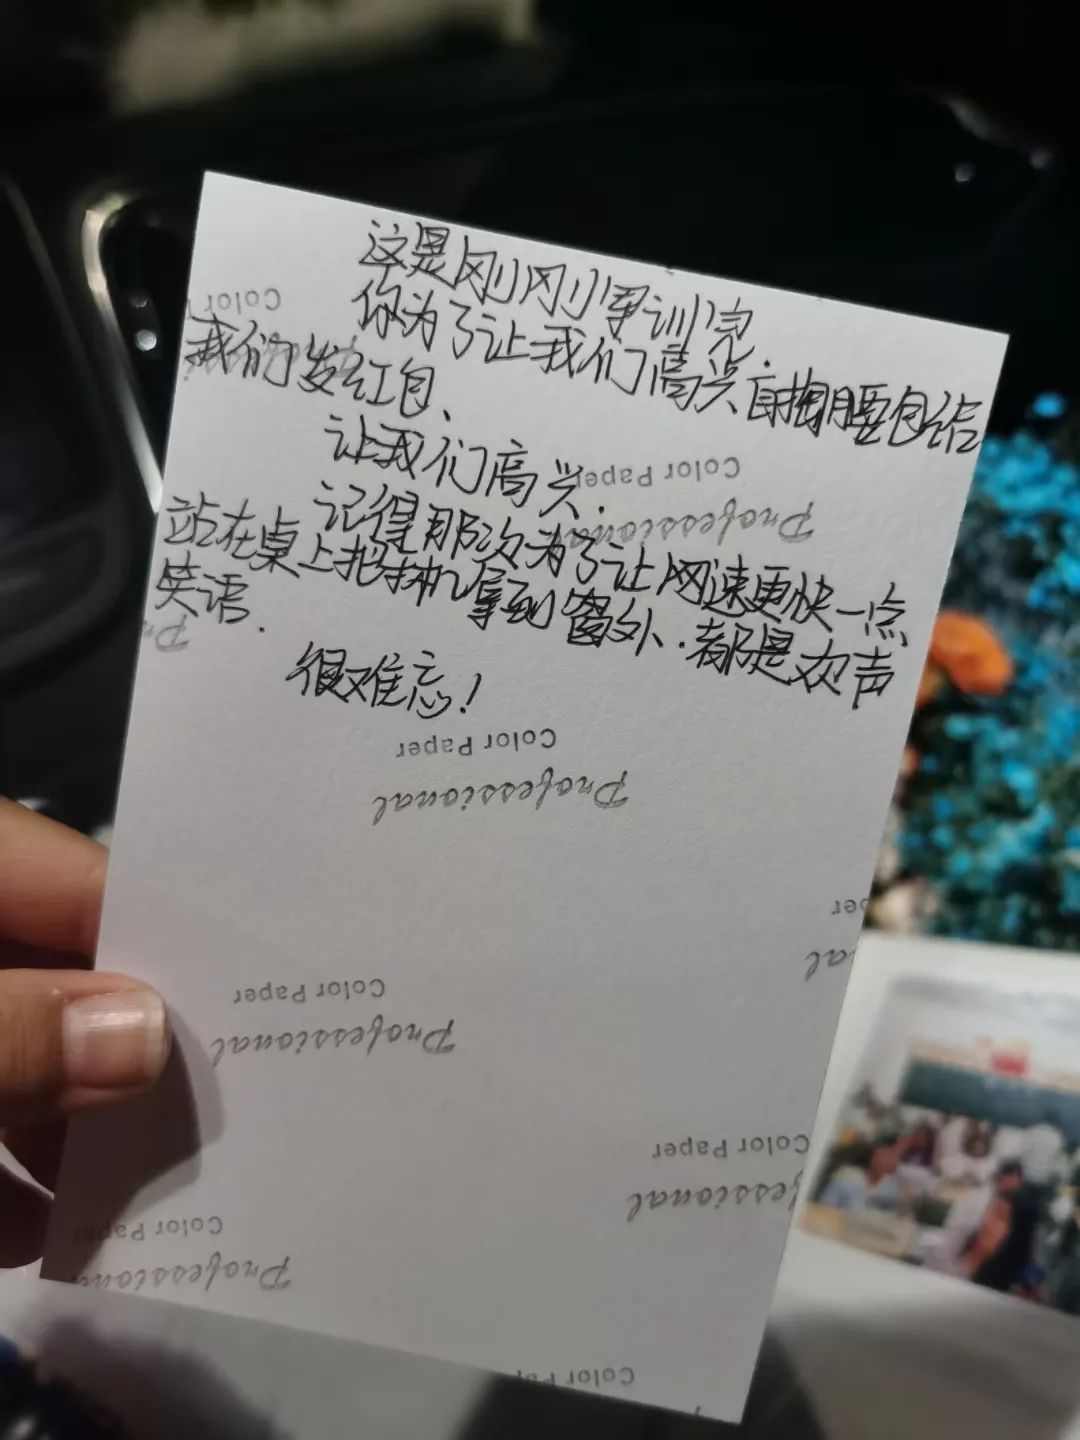 这是刚刚军训完.
你为了让我们高兴自掏腰包给
我们发红包、
让我们高兴.
记得那次为了让网速更快一点
站在桌上把手机拿到窗外.都是欢声
笑语.
很难忘!
Color Paper
Professional
Color Paper
Professional
Color Paper
Professional
Color Paper
Color Paper
Professional
Color Paper